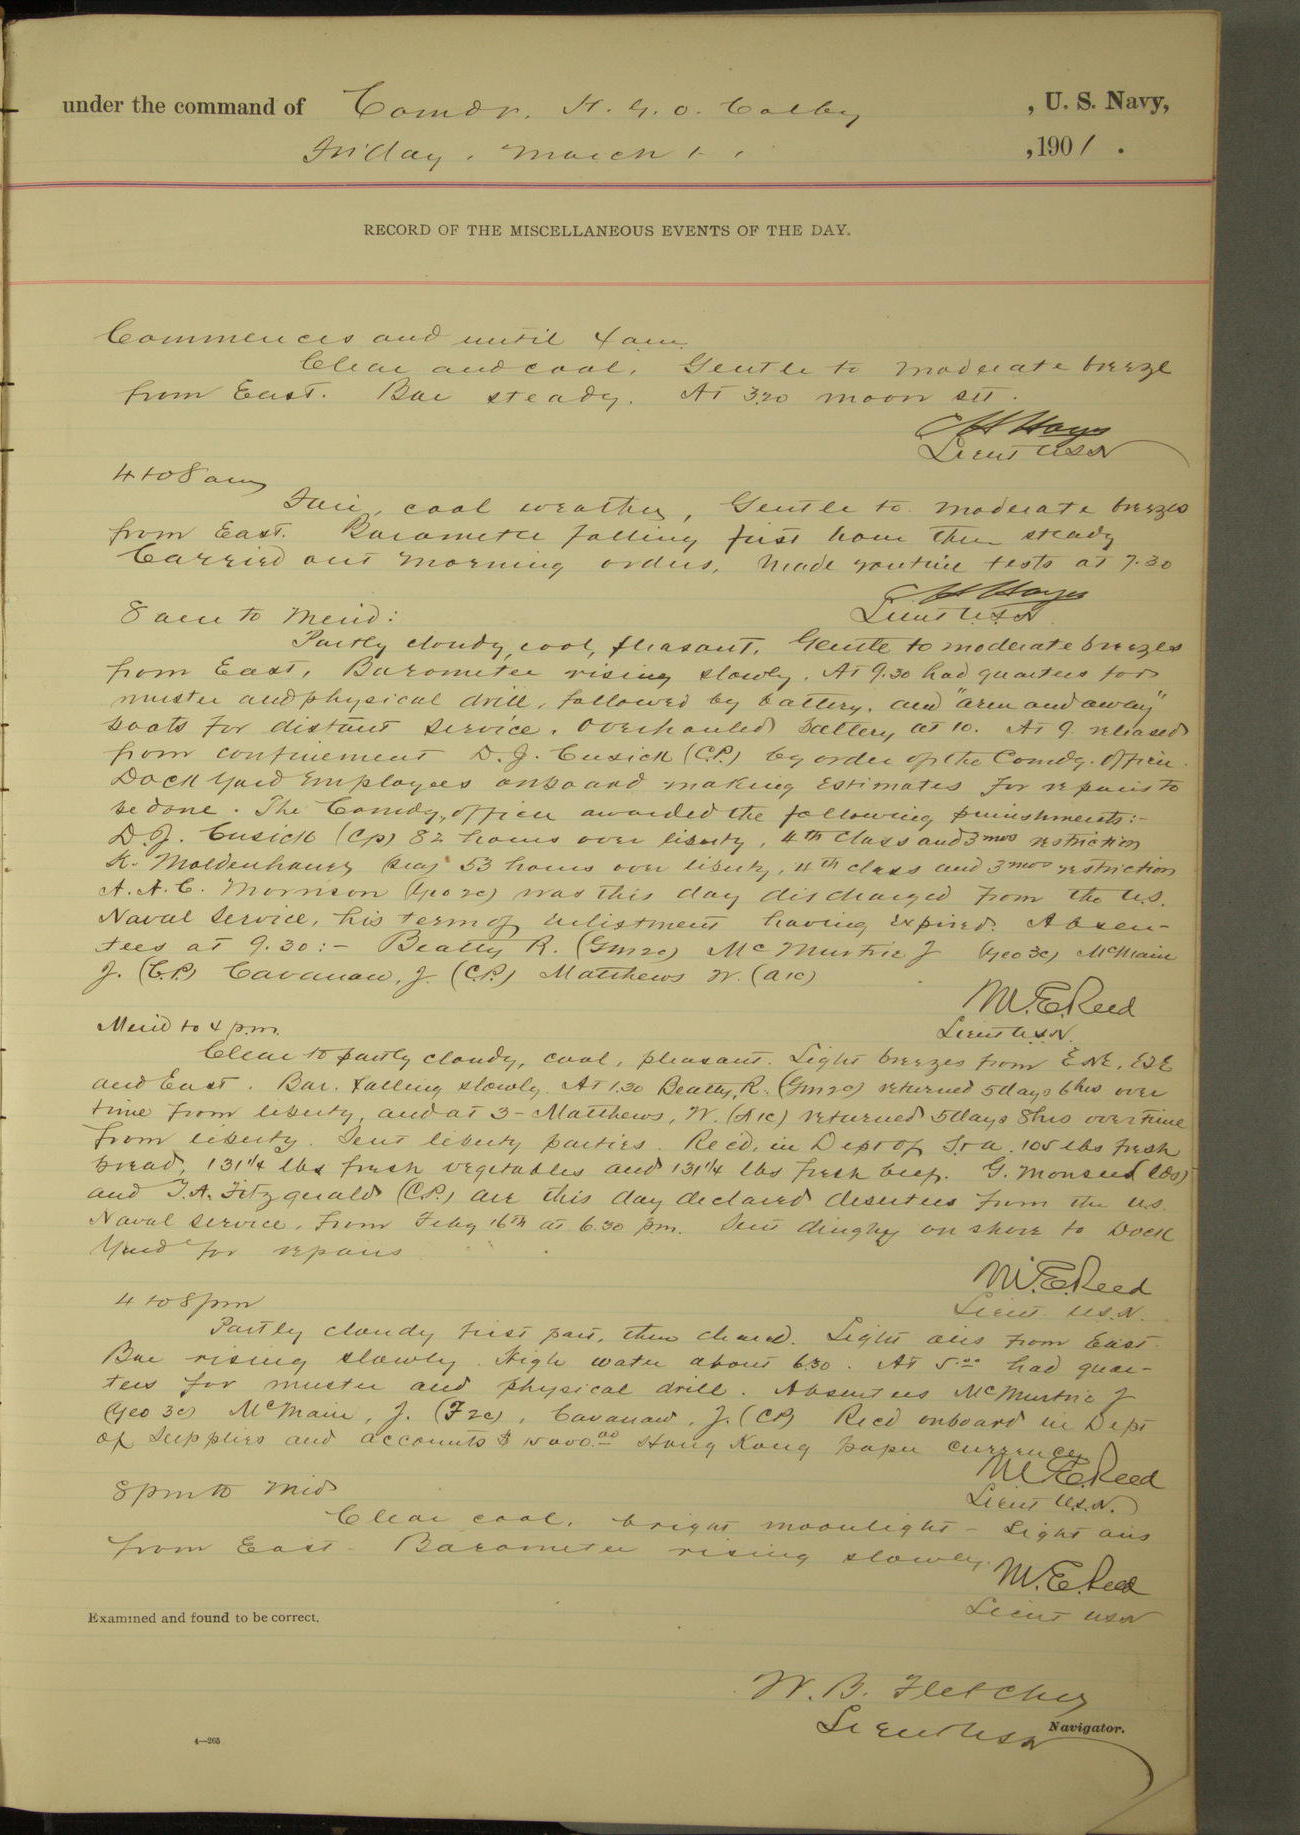 under the command of Comdr. H. G. O. Colby , U. S. Navy,
Friday, March 1, , 1901.
RECORD OF THE MISCELLANEOUS EVENTS OF THE DAY.
Commences and until 4 am.
Clear and cool. Gentle to moderate breeze
from East. Bar steady. At 3.20 moon set.
C H Hayes
Lieut USN
4 to 8 am
Fair, cool weather, Gentle to moderate breezes
from East. Barometer falling first hour then steady
Carried out morning orders. Made routine tests at 7.30
C H Hayes
Lieut USN
8 am to Merid:
Partly cloudy, cool, pleasant. Gentle to moderate breezes
from East. Barometer rising slowly. At 9.30 had quarters for
muster and physical drill, followed by battery, and "arm and away"
boats for distant service. Overhauled battery at 10. At 9 released
from confinement D. J. Cusick (C.P.) by order of the Comdg. Officer.
Dock Yard Employees onboard making Estimates for repairs to
be done. The Comdg. officer awarded the following punishments:-
D. J. Cusick (Cp) 82 hours over liberty, 4th Class and 3 mos restriction
K. Moldenhauer (sea) 53 hours over liberty, 4th class and 3 mos restriction
A. A. C. Morrison (Yeo 2c) was this day discharged from the U.S.
Naval Service, his term of enlistment having Expired. Absen-
tees at 9.30:- Beatty R. (Gm2c) McMurtrie J (Yeo 3c) McMain
J. (C.P.) Cavanaw, J. (C.P.) Matthews W. (A1c)
M. E. Reed
Lieut U.S.N.
Merid to 4 p.m.
Clear to partly cloudy, cool, pleasant. Light breezes from ENE, ESE
and East. Bar. falling slowly. At 1.30 Beatty, R. (Gm2c) returned 5 days 6 hrs over
time from liberty, and at 3 - Matthews, W. (A1c) returned 5 days 8 hrs over time
from liberty. Sent liberty parties. Rec'd. in Dept of S. & a. 105 lbs fresh
bread, 131 1/4 lbs fresh vegetables and 131 1/4 lbs fresh beef. G. Monsen
and T. A. Fitzgerald (C.P.) are this day declared deserters from the U.S.
Naval Service, from Feby 16th at 6.30 p.m. Sent dinghy on shore to Dock
Yard for repairs
M. E. Reed
Lieut. U.S.N.
4 to 8 pm
Partly cloudy first part, then cleared. Light airs from East.
Bar rising slowly. High water about 6.30. At 5.00 had quar-
ters for muster and physical drill. Absentees McMurtrie J
(Yeo 3c) McMain, J. (F2c), Cavanaw, J. (CP) Rec'd onboard in Dept
of Supplies and accounts $ 15000.00 Hong Kong paper currency
M. E. Reed
Lieut U.S.N.
8 pm to Mid
Clear cool, bright moonlight - Light airs
from East - Barometer rising slowly.
M. E. Reed
Lieut USN
Examined and found to be correct.
W. B. Fletcher
Lieut USN Navigator.
4—265